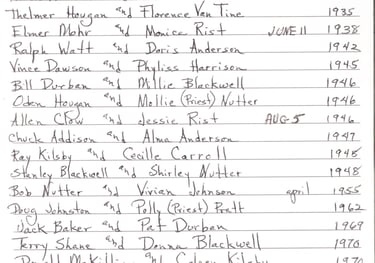 Thelmer Hougan and Florence Van Tine 1935
Elmer Mohr and Monica Rist JUNE 11 1938
Ralph Watt and Doris Anderson 1942
Vince Dawson and Phyliss Harrison 1945
Bill Durban and Millie Blackwell 1946
Oden Hougan and Mollie (Priest) Nutter 1946
Allen Clow and Jessie Rist AUG 5 1946
Chuck Addison and Alma Anderson 1947
Ray Kilsby and Cecille Carroll 1948
Stanley Blackwell and Shirley Nutter 1948
Bob Nutter and Vivian Johnson april 1955
Doug Johnston and Polly (Priest) Pratt 1962
Jack Baker and Pat Durban 1969
Terry Shane and Donna Blackwell 1970
and Kilsby 1970